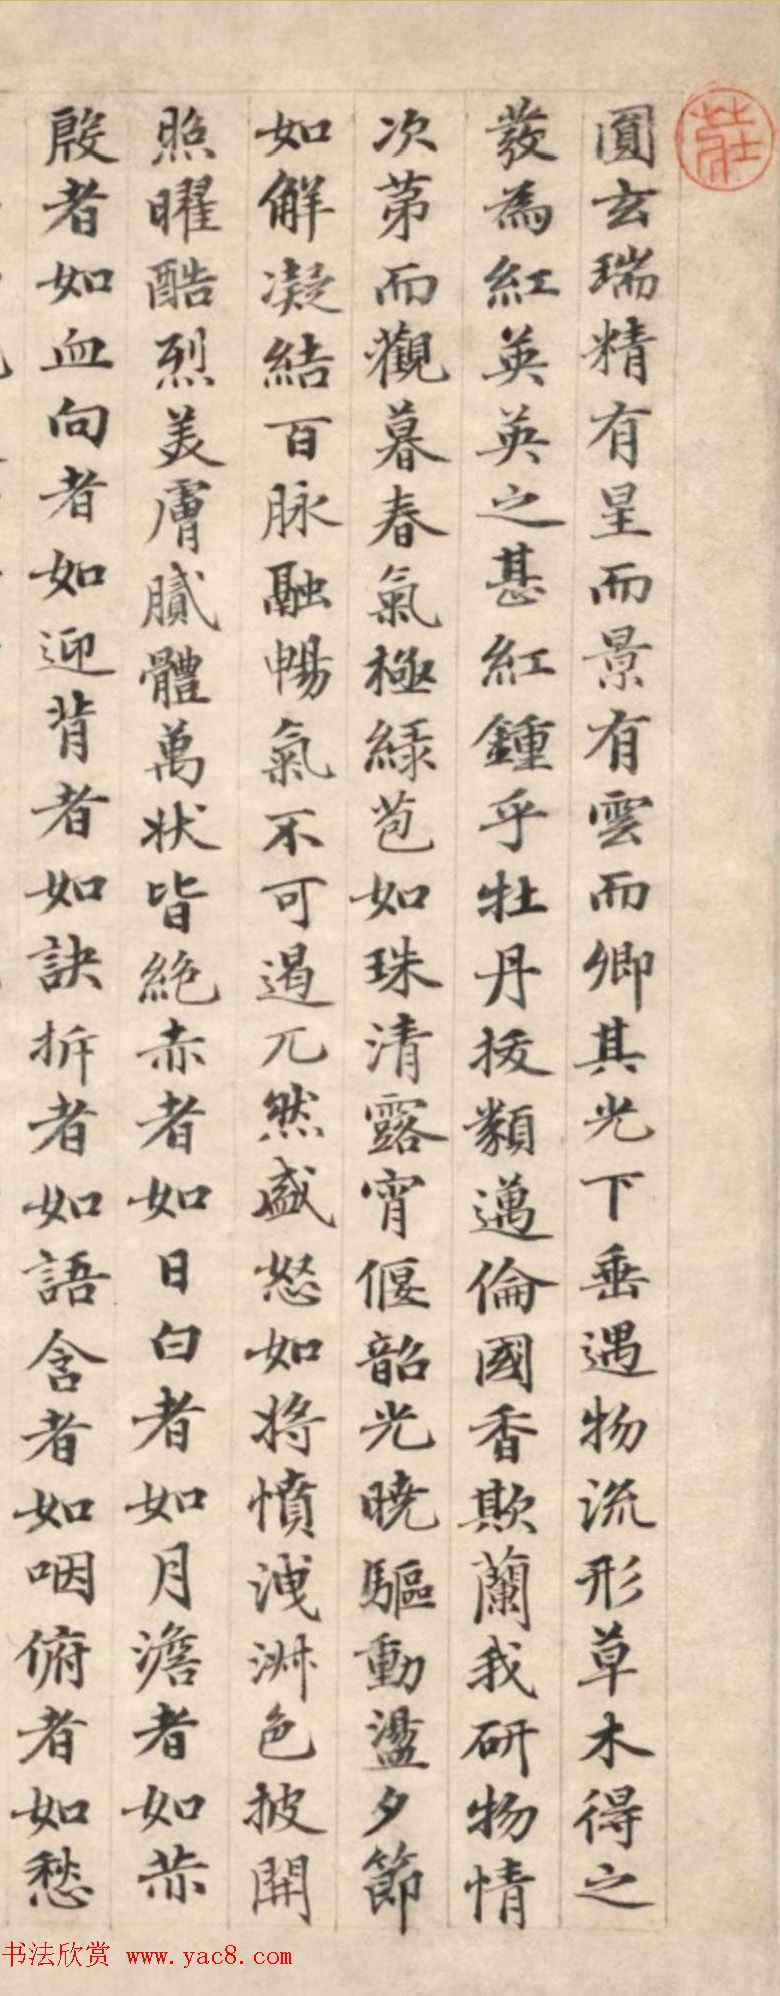 圓玄瑞精有星而景有雲而卿其光下垂遇物流形草木得之
發為紅英英之甚紅鍾乎牡丹拔類邁倫國香欺蘭我研物情
次第而觀暮春氣極綠苞如珠清露宵偃韶光曉驅動盪夕節
如解凝結百脉融暢氣不可遏兀然盛怒如將憤洩淑色披開
照曜酷烈美膚膩體萬狀皆絕赤者如日白者如月澹者如赤
殷者如血向者如迎背者如訣拆者如語含者如咽俯者如愁
书法欣赏 www.yac8.com